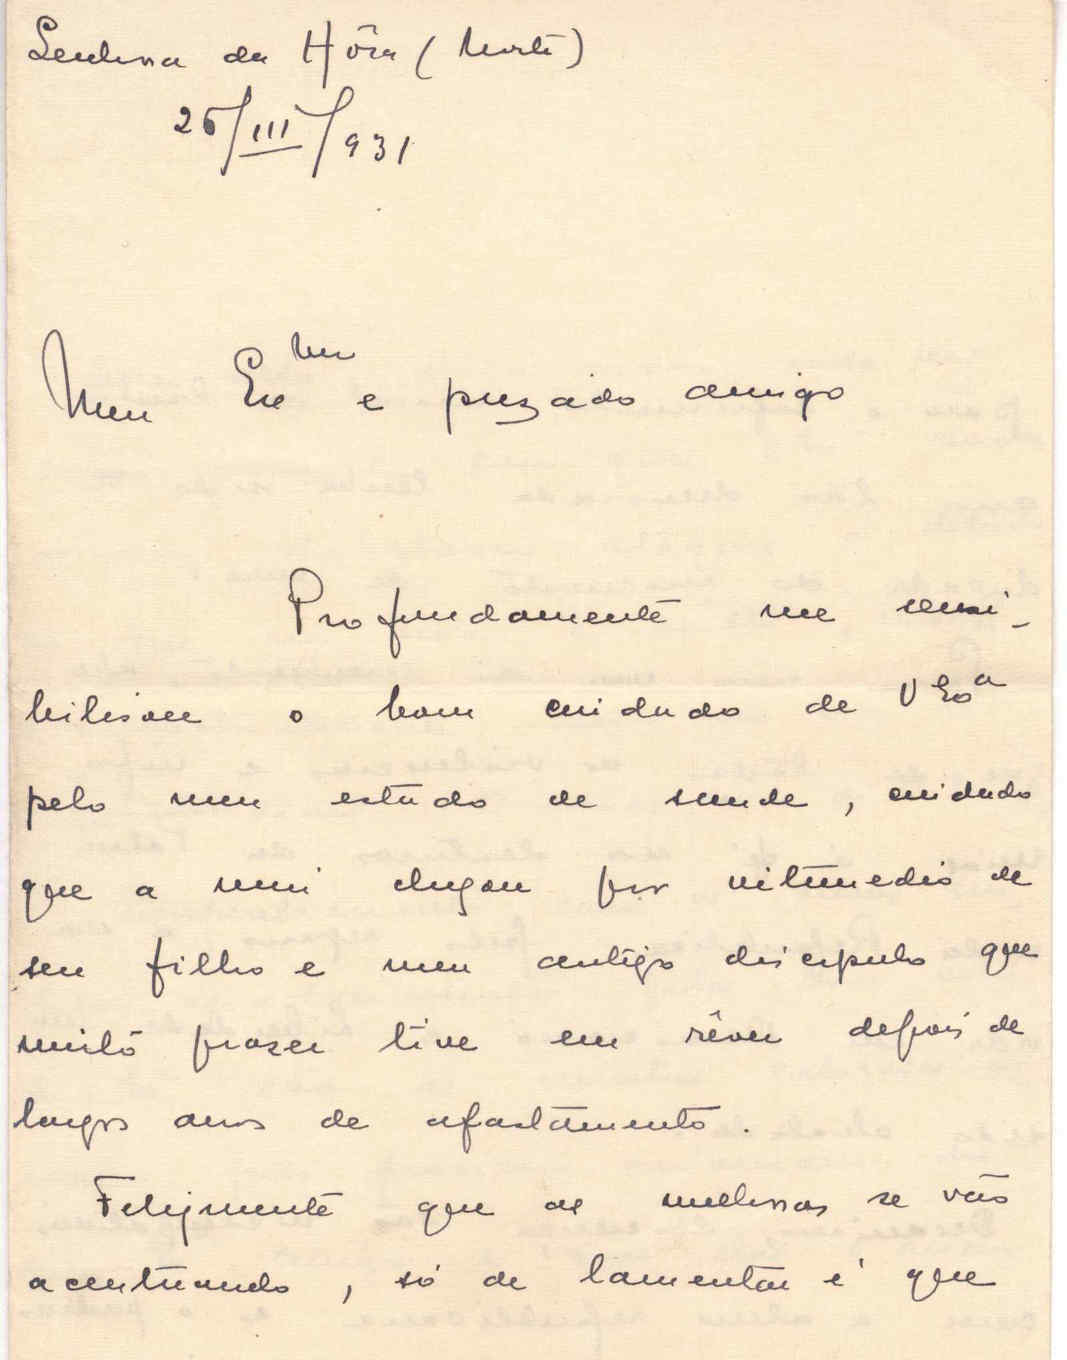 Senhora da Hôra (Norte)
25/III/931
Meu Exmo e prezado amigo
Profundamente me sensi-
bilisou o bom cuidado de V Exa
pelo meu estado de saude, cuidado
que a mim chegou por intermedio de
seu filho e meu antigo discipulo que
muito prazer tive em rêver depois de
largos anos de afastamento.
Felizmente que as melhoras se vão
acentuando, só de lamentar é que